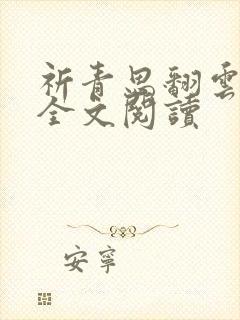 祈青思翻雲
全文閱讀
安寧